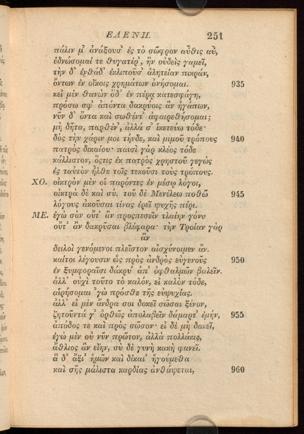 ΕΛΕΝΗ. 251
πάλιν μ' ἀνάξουσ' ἐς τὸ σῶφρον αὖθις αὖ,
ἑδνώσομαί τε θυγατέρ', ἣν οὐδεὶς γαμεῖ,
τὴν δ' ἐνθάδ' ἐκλιποῦσ' ἀλητείαν πικρὰν,
ὄντων ἐν οἴκοις χρημάτων ὀνήσομαι. 935
κεἰ μὲν θανὼν ὅδ' ἐν πυρᾷ κατεσφάγη,
πρόσω σφ' ἀπόντα δακρύοις ἂν ἠγάπων,
νῦν δ' ὄντα καὶ σωθέντ' ἀφαιρεθήσομαι;
μὴ δῆτα, παρθέν', ἀλλά σ' ἱκετεύω τόδε·
δὸς τὴν χάριν μοι τήνδε, καὶ μιμοῦ τρόπους 940
πατρὸς δικαίου· παισὶ γὰρ κλέος τόδε
κάλλιστον, ὅςτις ἐκ πατρὸς χρηστοῦ γεγὼς
ἐς ταὐτὸν ἦλθε τοῖς τεκοῦσι τοὺς τρόπους.
ΧΟ. οἰκτρὸν μὲν οἱ παρόντες ἐν μέσῳ λόγοι,
οἰκτρὰ δὲ καὶ σύ. τοὺ δὲ Μενέλεω ποθῶ 945
λόγους ἀκοῦσαι τίνας ἐρεῖ ψυχῆς πέρι.
ΜΕ. ἐγὼ σὸν οὔτ' ἂν προςπεσεῖν τλαίην γόνυ
οὔτ' ἂν δακρῦσαι βλέφαρα· τὴν Τροίαν γὰρ
ἂν
δειλοὶ γενόμενοι πλεῖστον αἰσχύνοιμεν ἄν.
καίτοι λέγουσιν ὡς πρὸς ἀνδρὸς εὐγενοῦς 950
ἐν ξυμφοραῖσι δάκρυ' ἀπ' ὀφθαλμῶν βαλεῖν.
ἀλλ' οὐχὶ τοῦτο τὸ καλὸν, εἰ καλὸν τόδε,
αἱρήσομαι 'γὼ πρόσθε τῆς εὐψυχίας.
ἀλλ' εἰ μὲν ἄνδρα σοι δοκεῖ σῶσαι ξένον,
ζητοῦντά γ' ὀρθῶς ἀπολαβεῖν δάμαρτ' ἐμὴν, 955
ἀπόδος τε καὶ πρὸς σῶσον· εἰ δὲ μὴ δοκεῖ,
ἐγὼ μὲν οὐ νῦν πρῶτον, ἀλλὰ πολλάκις,
ἄθλιος ἂν εἴην, σὺ δὲ γυνὴ κακὴ φανεῖ.
ἃ δ' ἄξι' ἡμῶν καὶ δίκαι' ἡγούμεθα
καὶ σῆς μάλιστα καρδίας ἀνθάψεται, 960